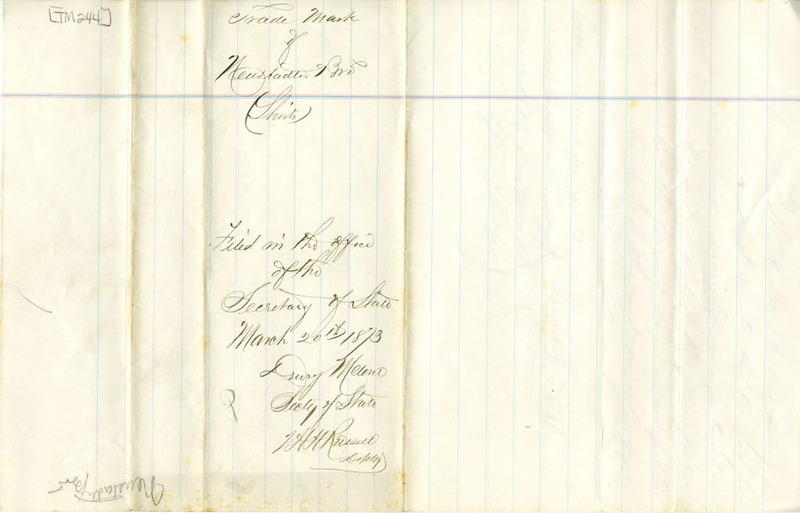 [TM244]
Trade Mark
of
Neustadter & Bro
(Shirts)
Filed in the office
of the
Secretary of State
March 20th 1873
Drury Melone
Secty of State
Russell
Deputy
Neustadter Bros